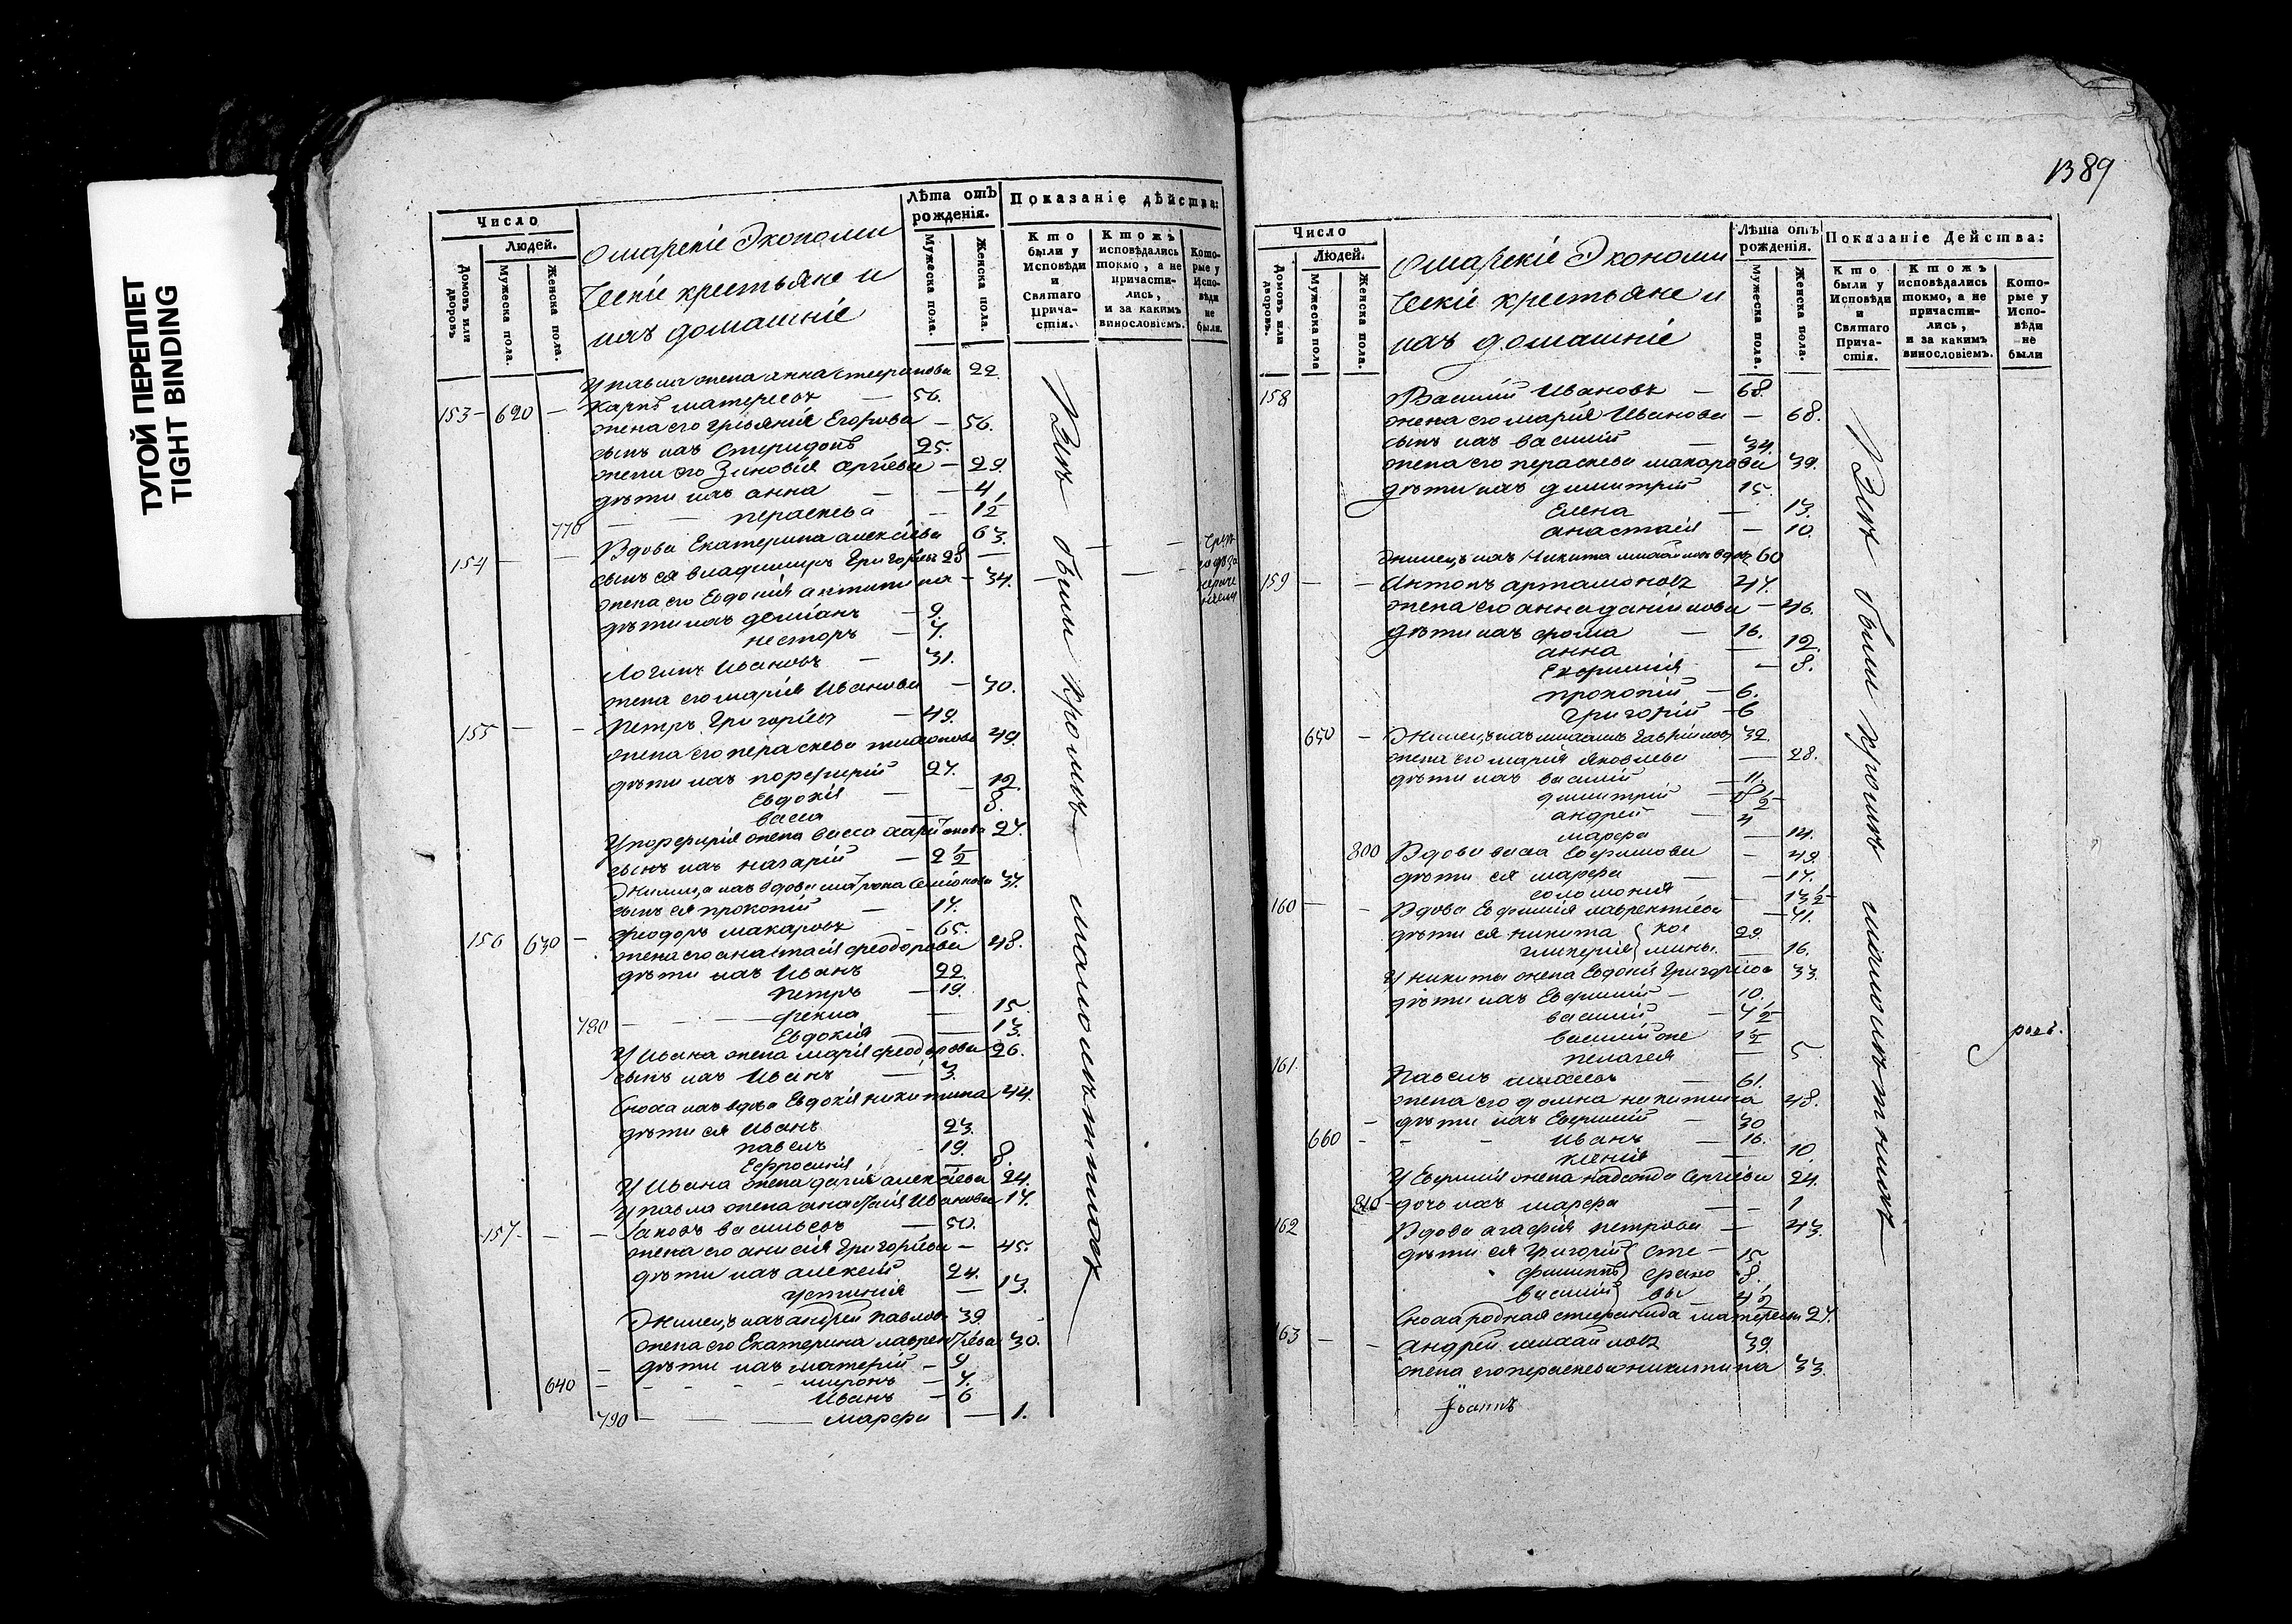 ТУГОЙ ПЕРЕПЛЕТ
TIGHT BINDING
Число
Людей.
Домовъ или дворовъ
Мужеска пола.
Женска пола.
Экономи
ческіе крестьяне и
ихъ домашніе
Лѣта отъ рожденія.
Мужеска пола.
Женска пола.
Показаніе дѣйства:
Кто были у Исповѣди и Святаго Прича-стія.
Ктожъ исповѣдались токмо, а не причасти-лись, и за какимъ винословіемъ.
Кото-рые у Испо-вѣди не были.
У павла жена анна 22
153 – 620 – Карпъ – 56.
жена его Егорова – 56.
сынъ ихъ Спиридонъ 25.
жена его Зиновія – 29.
дѣти ихъ анна – – 4
параскева – 1½
770
154 – – Вдова Екатерина алексіева 63.
сынъ ея владимиръ Григорьевъ 28 –
жена его Евдокія – 34.
дѣти ихъ деміанъ – 9.
несторъ – 7.
Логинъ Ивановъ – 31.
жена его марія Иванова – 30.
155 – – Петръ Григорьевъ – 49.
жена его параскева 49.
дѣти ихъ порфирій 27.
Евдокія – 12
васса – 8.
У порфирія жена васса 27.
сынъ ихъ назарій – 2½
Жилица ихъ вдова матрона 37.
сынъ ея прокопій – 17.
156 630 – феодоръ макаровъ – 65.
жена его анастасія феодорова 48.
дѣти ихъ Иванъ 22.
петръ – 19.
780 – – – фекла – 15
Евдокія – 13.
У Ивана жена марія феодорова 26.
сынъ ихъ Иванъ – 3.
Сноха ихъ вдова Евдокія никитина 44.
дѣти ея Иванъ 23.
павелъ 19.
Ефросинія – 8.
У Ивана жена дарія алексіева 24.
У павла жена анастасія Иванова 17.
157 – – Іаковъ васильевъ – 50.
жена его анисія Григоріева – 45.
дѣти ихъ алексій 24.
устинія – 13.
Жилецъ ихъ андрей павловъ 39
жена его Екатерина лаврентіева 30.
дѣти ихъ – 9
640 – миронъ – 7.
Иванъ – 6
790 – – марфа – 1.
Всѣ были кромѣ малолѣтныхъ
1389
Число
Людей.
Домовъ или дворовъ.
Мужеска пола
Женска пола.
Экономи
ческіе крестьяне и
ихъ домашніе
Лѣта отъ рожденія.
Мужеска пола.
Женска пола.
Показаніе Действа:
Кто были у Исповѣди и Святаго Прича-стія.
Ктожъ исповѣдались токмо, а не причасти-лись, и за какимъ винословіемъ.
Кото-рые у Испо-вѣди не были
158 Василій Ивановъ – 68.
жена его марія Иванова – 68.
сынъ ихъ василій – 34.
жена его параскева макарова 39.
дѣти ихъ димитрій 15.
Елена – 13.
анастасія – 10.
Жилецъ ихъ Никита вдовъ 60
159 – – Антонъ артамоновъ 47.
жена его анна даніилова – 46.
дѣти ихъ фома – 16.
анна – 12
– 8.
прокопій – 6.
григорій – 6
650 – Жилецъ ихъ Гавріиловъ 32.
жена его марія яковлева – 28.
дѣти ихъ василій – 11.
димитрій – 8½
андрей – 4
марфа – 14.
800 Вдова васса – 49.
дѣти ея марфа – 17.
соломонія – 13½
160 – – Вдова Евфимія лаврентіева – 41.
дѣти ея никита 29.
гликерія – 16.
У никиты жена Евдокія Григорьева 33.
дѣти ихъ Евфимій – 10.
василій – 4½
василій же 1½
пелагея – 5
161. Павелъ – 61.
жена его домна никитина 48.
– дѣти ихъ Евфимій – 30
660 – – Иванъ – 16.
ксенія – 10.
У Евфимія жена Сергіева 24.
810 – дочь ихъ марфа – – 1
162 Вдова агафія петрова – 43.
дѣти ея Григорій – 15
филиппъ 8.
василій 4½
Сноха родная стефанида 27.
163 – – андрей михайловъ 39.
жена его параскева никитина 33.
Іоаннъ
Всѣ были кромѣ малолѣтныхъ